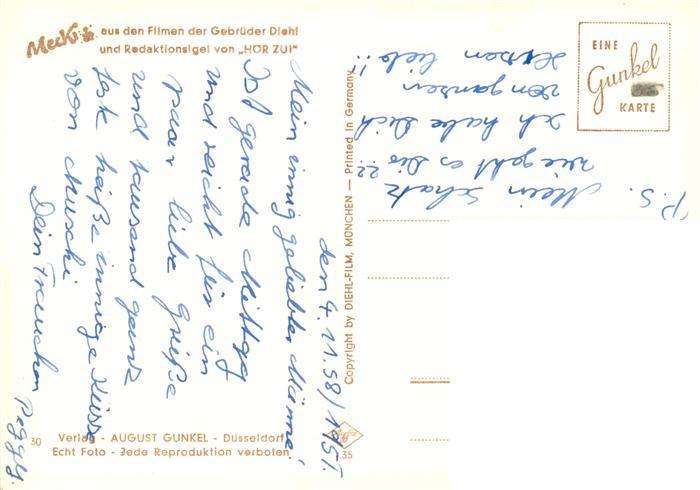 Mecki
aus den Filmen der Gebrüder Diehl
und Redaktionsigel von „HÖR ZU!"
den 4.11.58/1915T.
Mein innig geliebter Männe!
Ist gerade Mittag
und reicht für ein
paar liebe Grüße
und tausend ganz
feste heiße innige Küsse
von Muschi
Dein Frauchen Peggy.
P.S. Mein Schatz
wie geht es Dir ???
Ich habe Dich
von ganzen
Herzen lieb!!
EINE
Gunkel
KARTE
Copyright by DIEHL-FILM, MÜNCHEN — Printed in Germany
30
Verlag - AUGUST GUNKEL - Düsseldorf
Echt Foto - Jede Reproduktion verboten
35